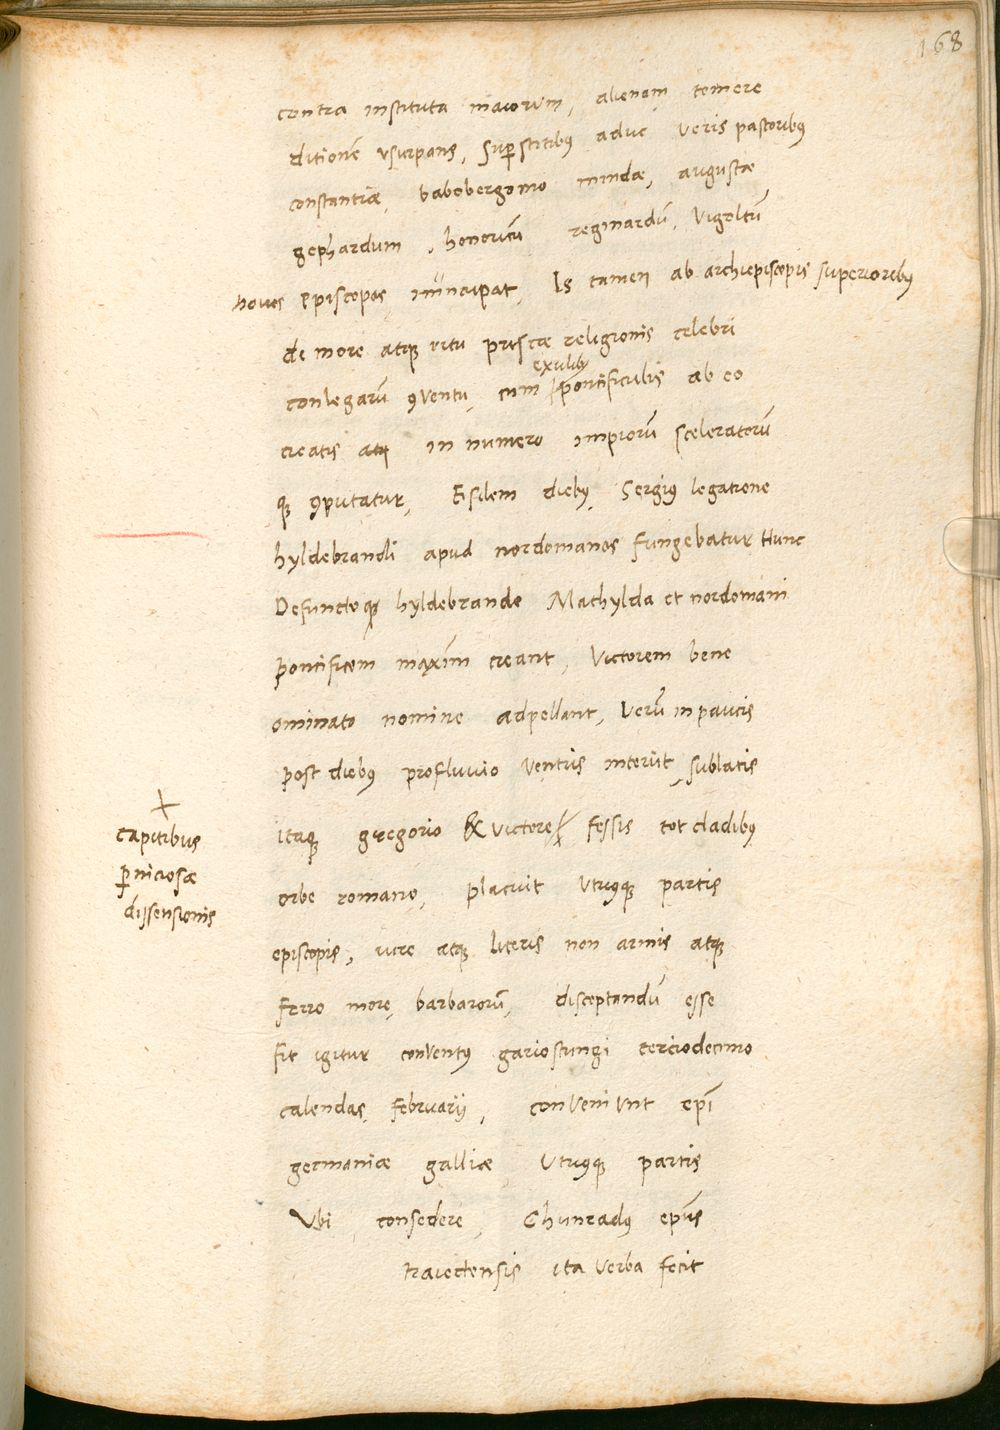 168
contra instituta maiorum, alienam temere
ditionē vsurpans, Supstitibꝰ aduc veris pastoribꝰ
constantiæ, babobergomo mindæ, augustæ
gephardum, honoricū reginardū, Vigoltū
nouos episcopos nuncupat, Is tamen ab archiepiscopis superioribꝰ
de more atqꝫ ritu priscæ religionis celebri
exulibꝰ
conlegarū ꝯventu, cum pontificulis ab eo
creatis atqꝫ in numero impiorū sceleratorū
qꝫ ꝯputatur, Eisdem diebꝰ, Sergiꝰ legatione
hyldebrandi apud nordomanos fungebatur Hunc
Defunctoqꝫ hyldebrando Machylda et nordomani
pontificem maxim̄ creant, Victorem bene
ominato nomine adpellant, Verū in paucis
post diebꝰ profluuio ventris interiit, sublatis
itaqꝫ gregorio & victore fessis tot cladibꝰ
+
capitibus
ꝑniciosæ
dissensionis
orbe romano, placuit vtriꝰqꝫ partis
episcopis, iure atqꝫ literis non armis atqꝫ
ferro more, barbarorū, disceptandū esse
fit igitur conventꝰ gariostungi terciodecimo
calendas februarij, conveniunt ep̄i
germaniæ galliæ vtriꝰqꝫ partis
Vbi consedere, Chunradꝰ ep̄us
traiectensis ita verba fecit